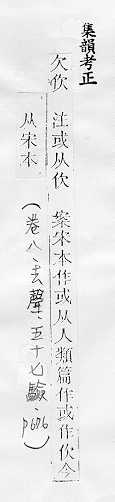 集韻考正
欠㐸 注或从㐸 案宋本作或从人類篇作或作㐸今
从宋本 (卷八、去聲、五十七驗、p626)